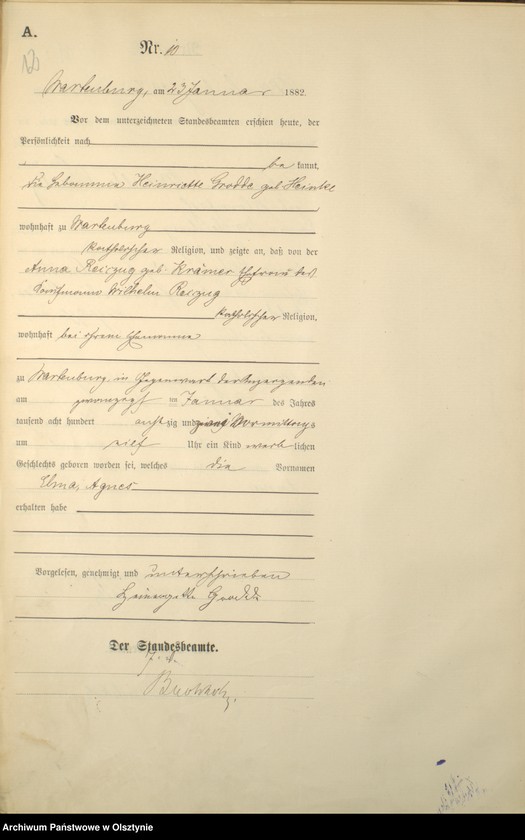 A.
Nr. 10
Wartenburg, am 23 Januar 1882
Vor dem unterzeichneten Standesbeamten erschien heute, der
Persönlichkeit nach
be kannt,
die Hebamme Heinriette Grodde geb Heinke
wohnhaft zu Wartenburg
katholischer Religion, und zeigte an, daß von der
Anna Reiczug geb. Krämer Ehefrau des
Kaufmanns Wilhelm Reiczug
katholischer Religion,
wohnhaft bei ihrem Ehemanne
zu Wartenburg in Gegenwart der Anzeigenden
am im Januar des Jahres
tausend acht hundert acht zig und zwei Vormittags
um elf Uhr ein Kind weib lichen
Geschlechts geboren worden sei, welches die Vornamen
Elma, Agnes
erhalten habe
Vorgelesen, genehmigt und unterschrieben
Grodde
Der Standesbeamte.
Archiwum Państwowe w Olsztynie